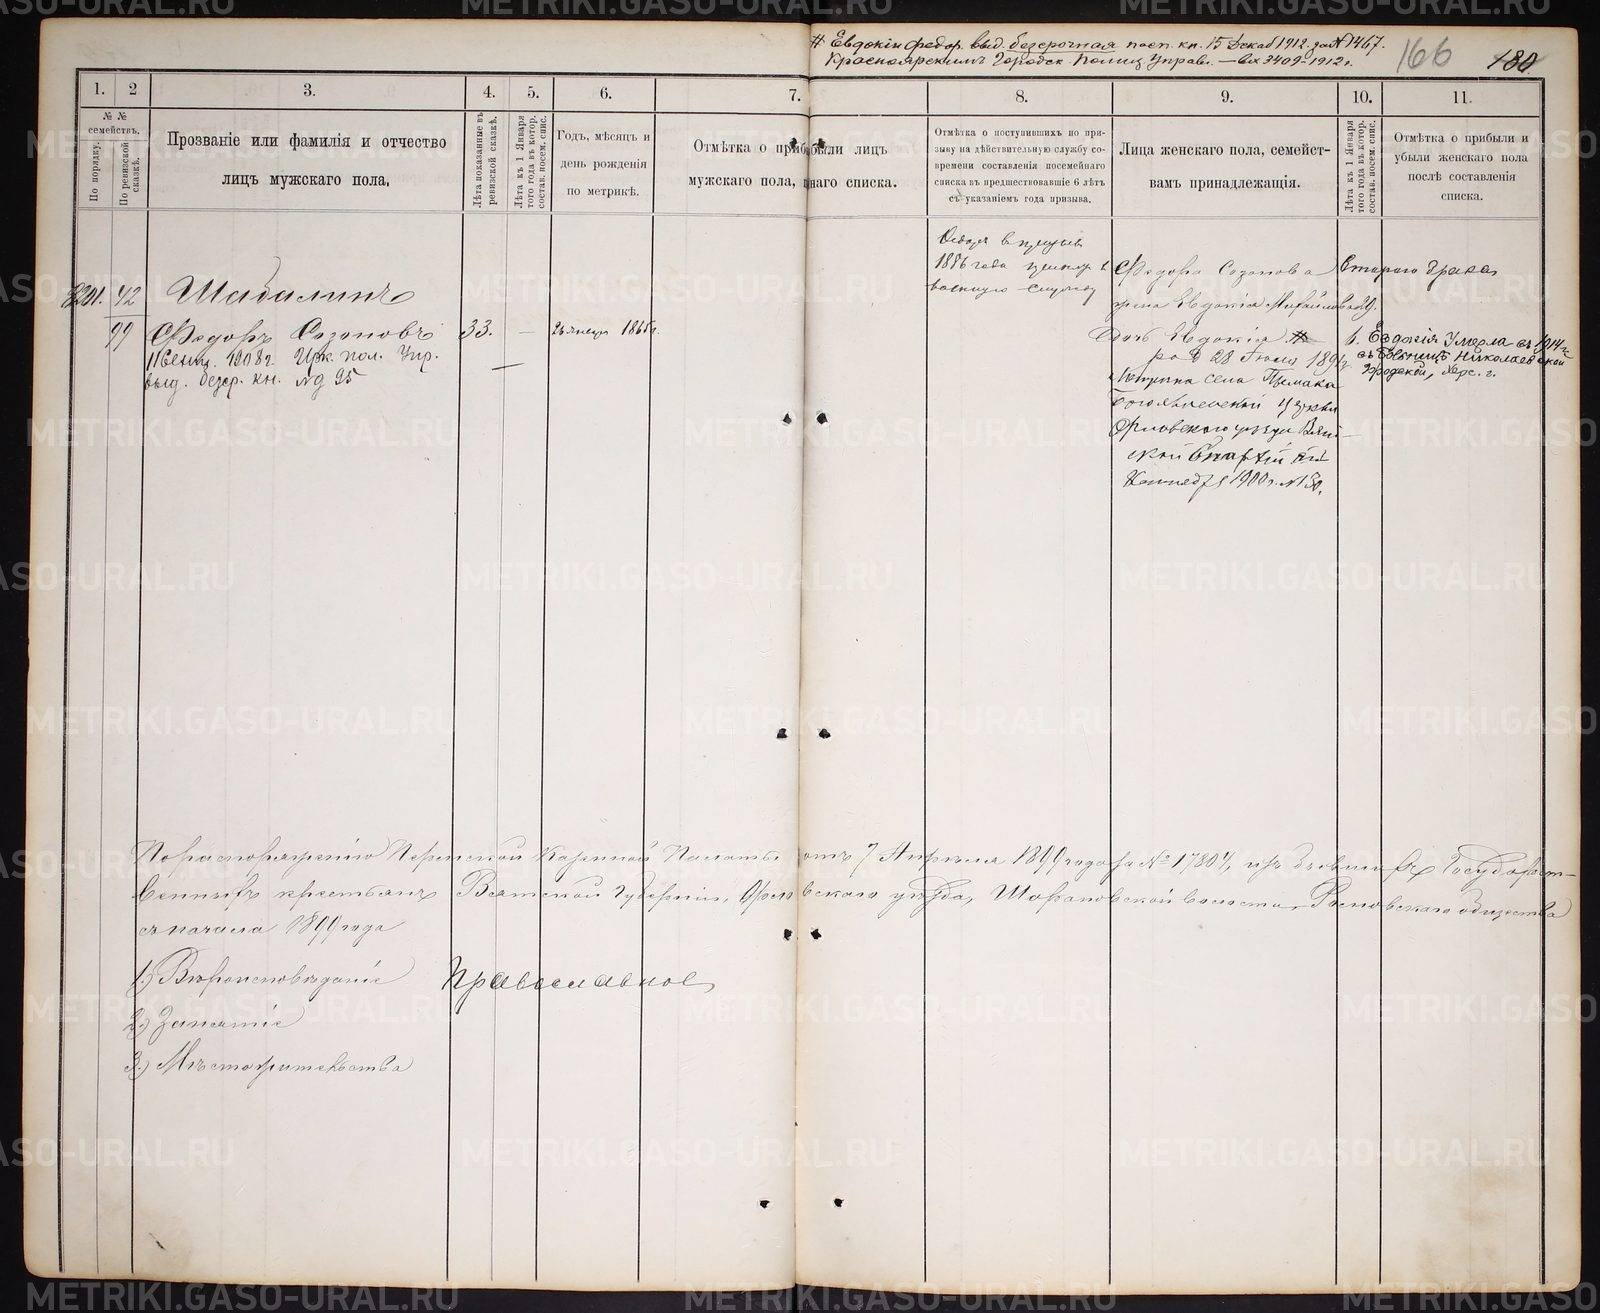 # Евдокіи Федор. выд. безсрочная пасп. кн. 15 Декаб 1912. за № 1467.
Красноярскимъ Городск. Полиц. Управл. — вх 3409-1912 г.
166
180
1. 2 3. 4. 5. 6. 7. 8. 9. 10. 11.
№ №
семействъ.
По порядку.
По ревизской сказкѣ.
Прозваніе или фамилія и отчество
лицъ мужскаго пола.
Лѣта показанныя въ
ревизской сказкѣ.
Лѣта къ 1 Января
того года въ котор.
состав. посем. спис.
Годъ, мѣсяцъ и
день рожденія
по метрикѣ.
Отмѣтка о прибыли лицъ
мужскаго пола, наго списка.
Отмѣтка о поступившихъ по при-
зыву на дѣйствительную службу со-
времени составленія посемейнаго
списка въ предшествовавшіе 6 лѣтъ
съ указаніемъ года призыва.
Лица женскаго пола, семейст-
вамъ принадлежащія.
Лѣта къ 1 Января
того года въ котор.
состав. посем. спис.
Отмѣтка о прибыли и
убыли женскаго пола
послѣ составленія
списка.
42 Шабалинъ
99 Федоръ Созоновъ 33. — 1865 г.
1908 г. Ирк. пол. Упр.
выд. безср. кн. № 95
—
Федоръ в призыв
1886 года принят в
военную службу
Федора Созонова Втораго брака
жена Евдокія Михайловна
Дочь Евдокія # 6.
род 28 Іюля
Метрика села
Богоявленской церкви
Орловскаго уѣзда Вят-
ской
1900 г. №
Евдокія Умерла въ 1914 г.
въ больницѣ Николаевской
городской, Хер. г.
По распоряженію Пермской Казенной Палаты отъ 7 Апрѣля 1899 года за № 17804, изъ бывшихъ Государст-
венныхъ крестьянъ Вятской Губерніи, Орловскаго уѣзда, волости, общества
съ начала 1899 года
1.) Вѣроисповѣданіе Православное
2.) Занятіе
3.) Мѣстожительства
METRIKI.GASO-URAL.RU